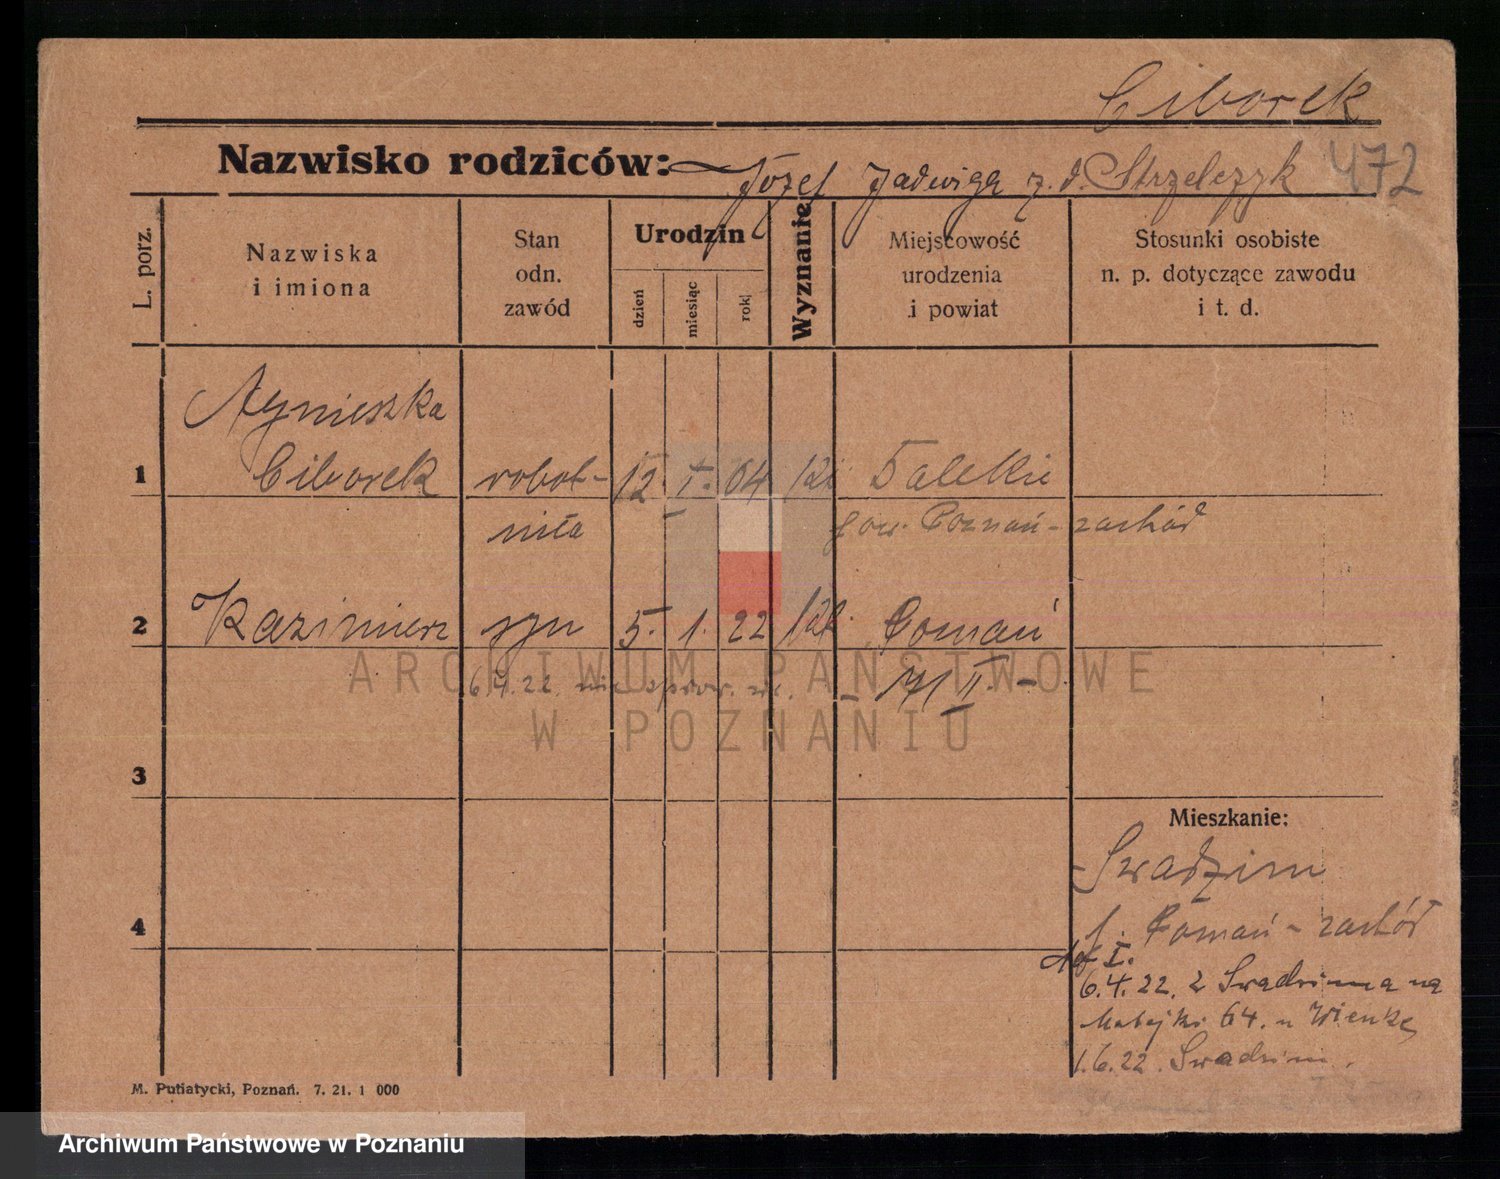 Ciborek
Nazwisko rodziców: Józef Jadwiga z. d. Strzelczyk 472
L. porz.
Nazwiska
i imiona
Stan
odn.
zawód
Urodzin
dzień
miesiąc
rok
Wyznanie
Miejscowość
urodzenia
i powiat
Stosunki osobiste
n. p. dotyczące zawodu
i t. d.
Agnieszka
1 Ciborek robot- 12. I. 04
nica pow. Poznań - zachód
2 Kazimierz syn 5. 1. 22 kat. Poznań
6.4.22.
3
Mieszkanie:
Swadzim
4 p. Poznań - zachód
6.4.22. z Swadzima na
Matejki 64. u Wienke
1.6.22. Swadzim.
M. Putiatycki, Poznań. 7. 21. 1 000
ARCHIWUM PAŃSTWOWE
W POZNANIU
Archiwum Państwowe w Poznaniu